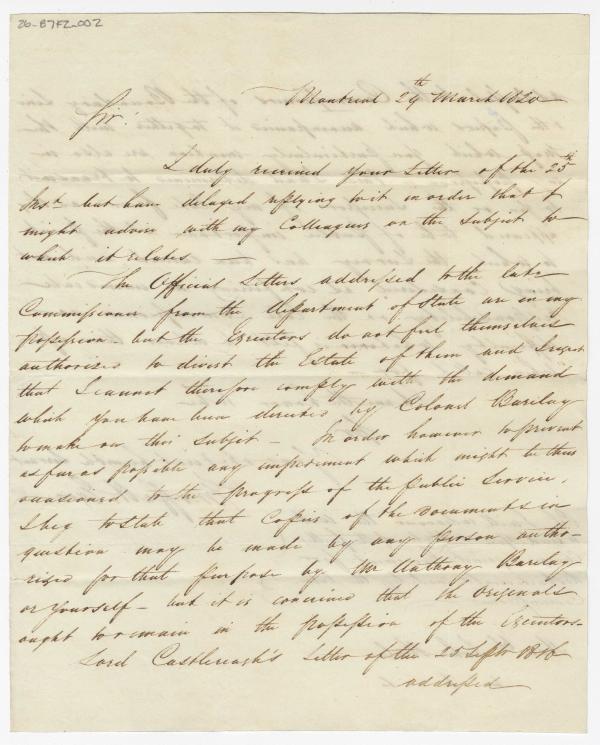 26-B7F2-002
Montreal 29th March 1820
Sir!
I duly received your Letter of the 25th
Inst. but have delayed replying to it in order that I
might advise with my Colleagues on the subject to
which it relates —
The Official Letters addressed to the late
Commissioner from the Department of State are in my
possession - but the Executors do not feel themselves
authorised to divest the Estate of them and I regret
that I cannot therefore comply with the demand
which you have been directed by Colonel Barclay
to make on this subject — In order however to prevent
as far as possible any impediment which might be thus
occasioned to the progress of the Public Service,
I beg to state that Copies of the Documents in
question may be made by any person autho-
rised for that purpose by Mr Anthony Barclay
or yourself - but it is conceived that the originals
ought to remain in the possession of the Executors -
Lord Castlereagh's Letter of the 25 Septr 1816
addressed